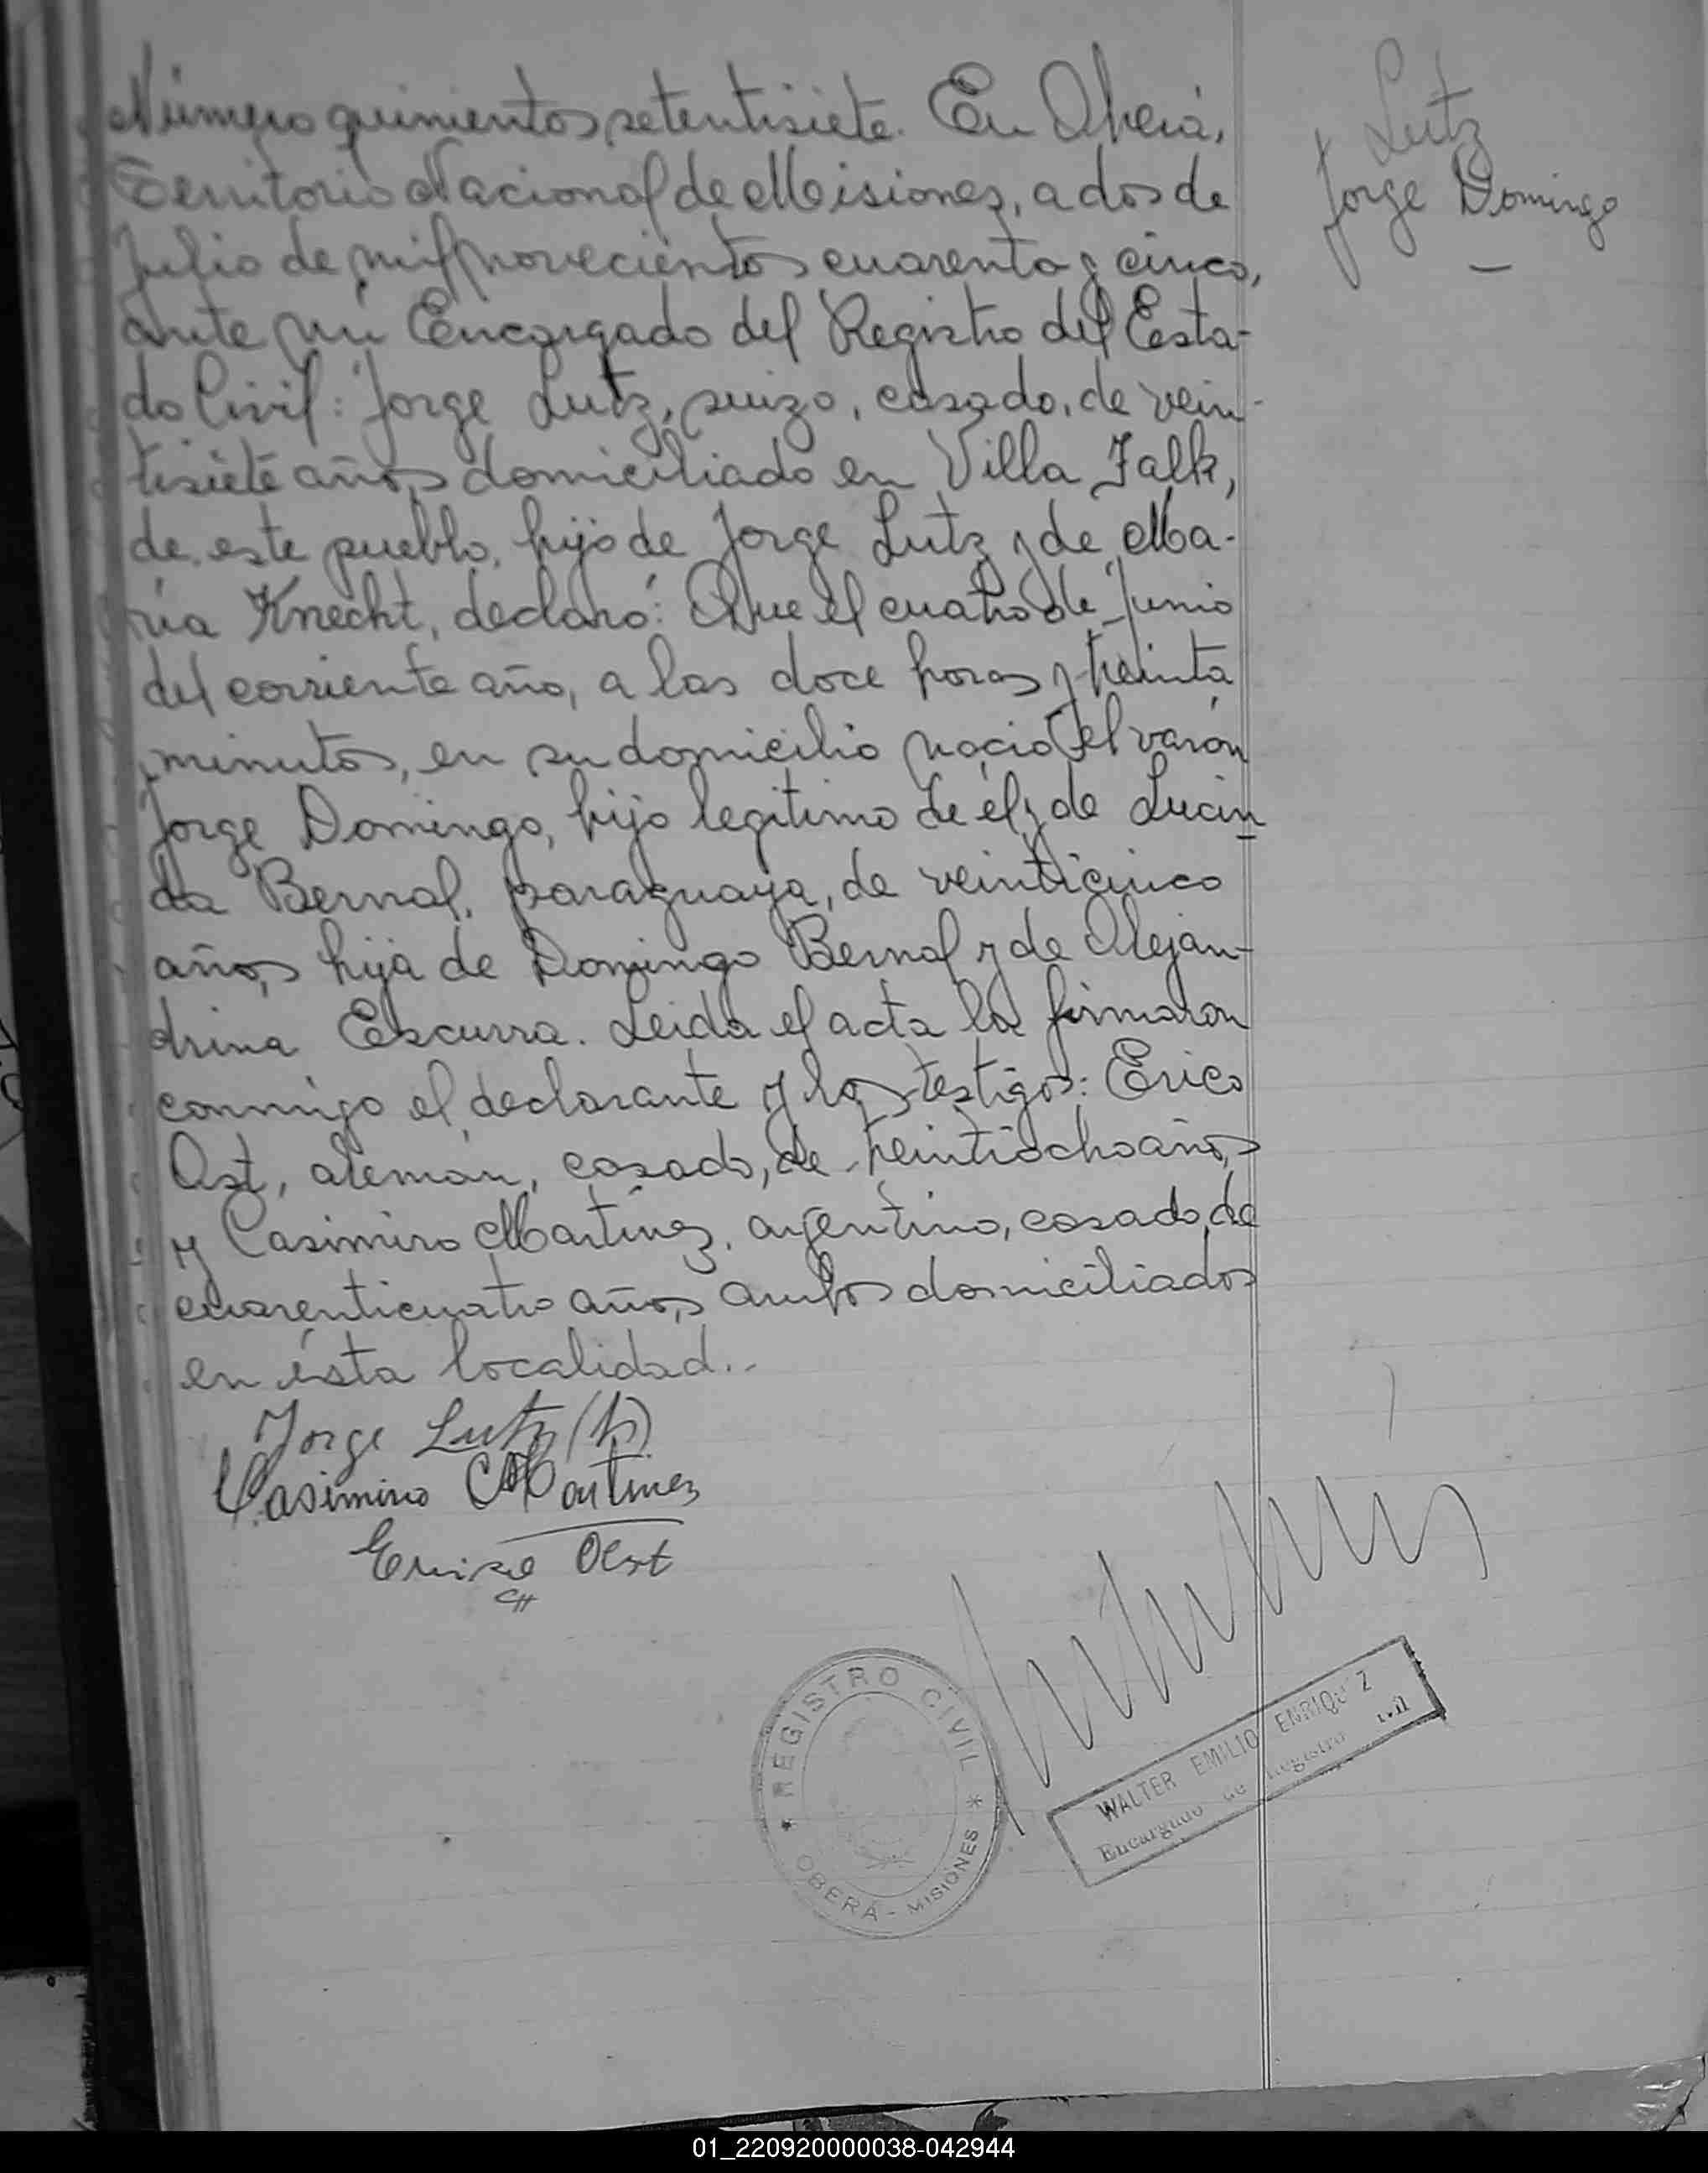 Número quinientos setentisiete. En Oberá,
Territorio Nacional de Misiones, a dos de
Julio de mil novecientos cuarenta y cinco,
ante mí Encargado del Registro del Esta-
do Civil: Jorge Lutz, suizo, casado, de vein-
tisiete años domiciliado en Villa Falk,
de este pueblo, hijo de Jorge Lutz y de Ma-
ría Knecht, declaró: Que el cuatro de Junio
del corriente año, a las doce horas y treinta
minutos, en su domicilio nació el varón
Jorge Domingo, hijo legitimo de él y de Lucin
da Bernal, paraguaya, de veinticinco
años, hija de Domingo Bernal y de Alejan-
drina Escurra. Leida el acta la firmaron
conmigo el declarante y los testigos: Erico
Ost, alemán, casado, de treintiocho años,
y Casimiro Martinez, argentino, casado, de
cuarenticuatro años, ambos domiciliados
en ésta localidad..
Jorge Lutz (h)
Casimiro Martinez
Lutz
Jorge Domingo
REGISTRO CIVIL
OBERÁ - MISIONES
WALTER EMILIO ENRIQUEZ
Encargado de Registro Civil
01_220920000038-042944